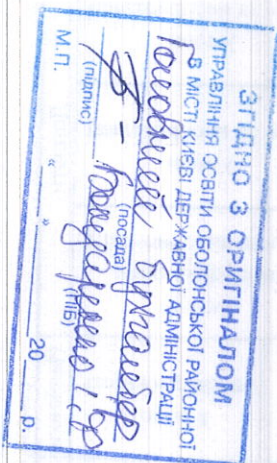 ЗГІДНО З ОРИГІНАЛОМ
УПРАВЛІННЯ ОСВІТИ ОБОЛОНСЬКОЇ РАЙОННОЇ
В МІСТІ КИЄВІ ДЕРЖАВНОЇ АДМІНІСТРАЦІЇ
Головний бухгалтер
(посада)
(підпис) (ПІБ)
М.П. " " 20 р.